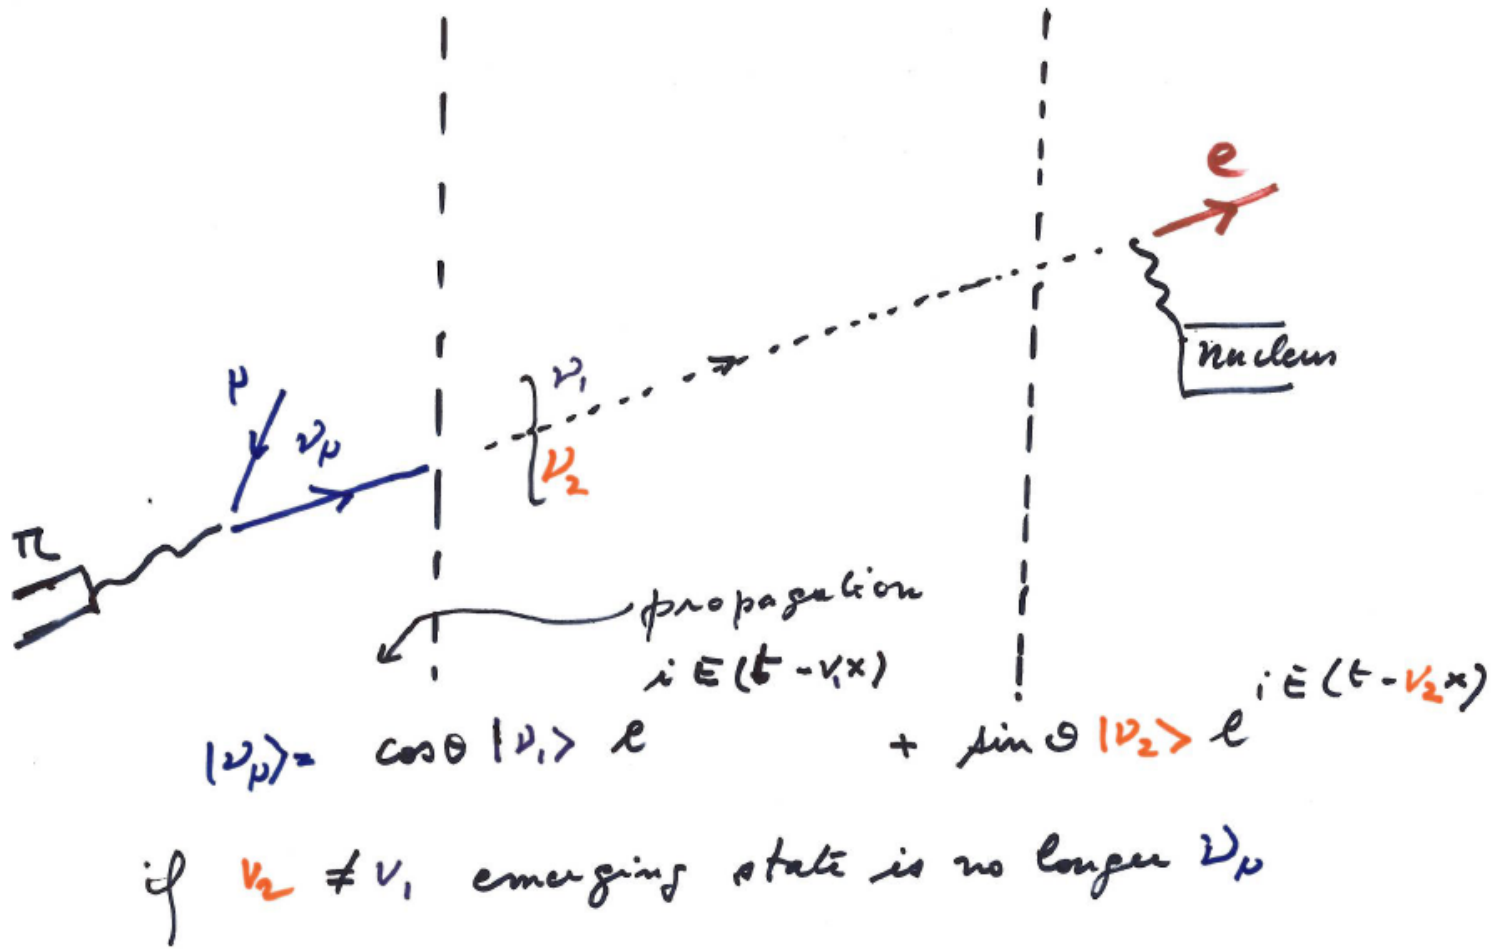 e
nucleus
μ
ν_μ
ν₁
ν₂
π
propagation
|ν_μ>= cosθ |ν₁> e^{iE(t-v₁x)} + sinθ |ν₂> e^{iE(t-v₂x)}
if v₂ ≠ v₁ emerging state is no longer ν_μ